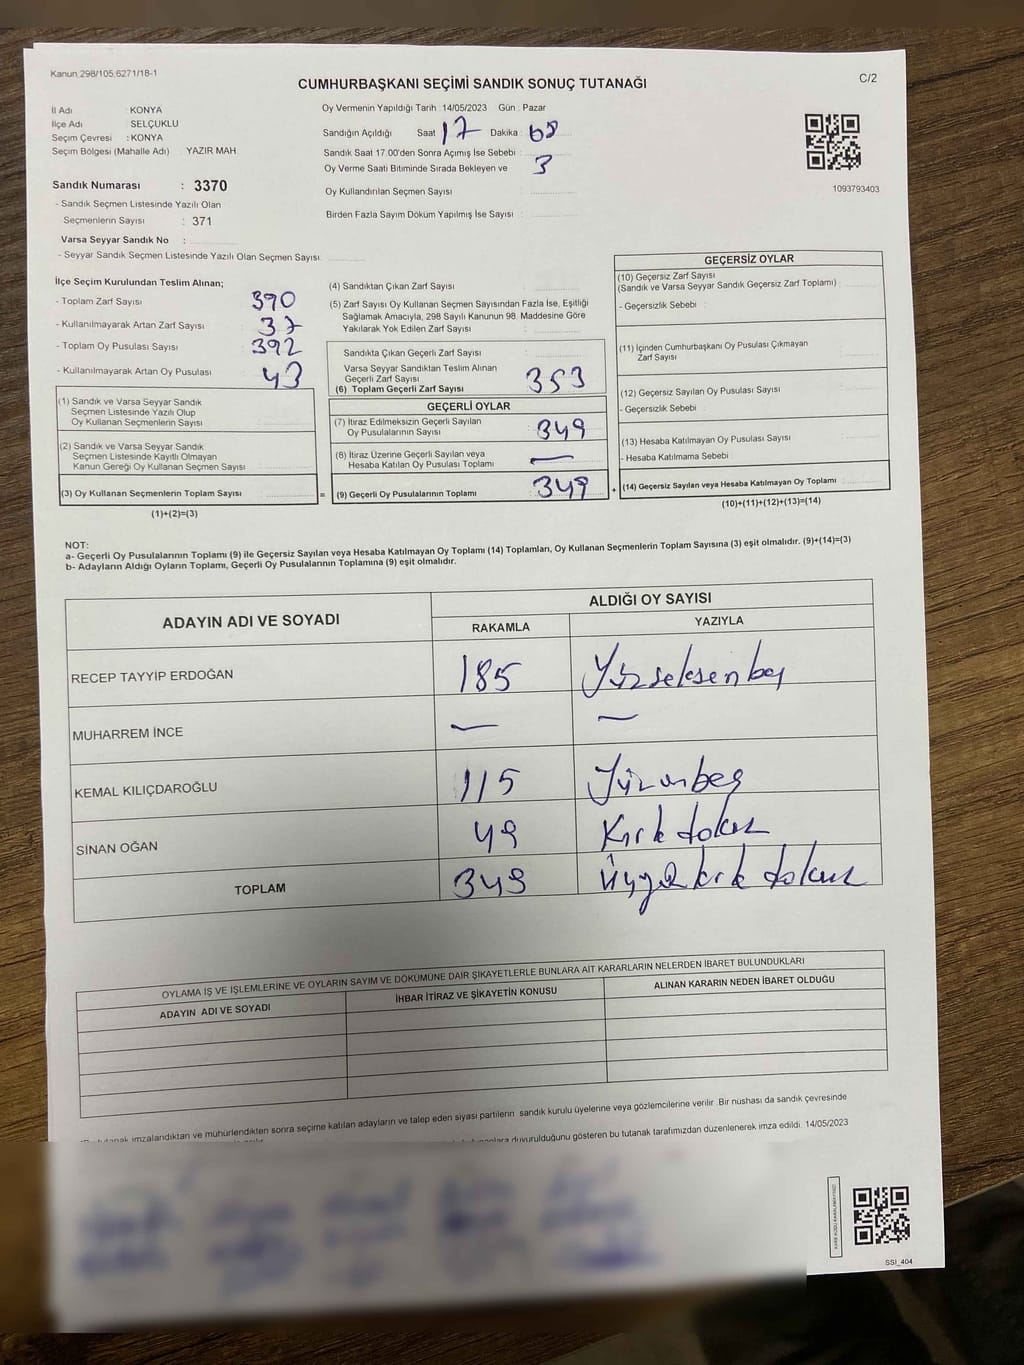 Kanun 298/105, 6271/18-1
CUMHURBAŞKANI SEÇİMİ SANDIK SONUÇ TUTANAĞI
C/2
İl Adı KONYA
İlçe Adı SELÇUKLU
Seçim Çevresi : KONYA
Seçim Bölgesi (Mahalle Adı) YAZIR MAH
Sandık Numarası : 3370
- Sandık Seçmen Listesinde Yazılı Olan
Seçmenlerin Sayısı : 371
Varsa Seyyar Sandık No :
- Seyyar Sandık Seçmen Listesinde Yazılı Olan Seçmen Sayısı
Oy Vermenin Yapıldığı Tarih : 14/05/2023 Gün : Pazar
Sandığın Açıldığı Saat 17 Dakika :
Sandık Saat 17.00'den Sonra Açımış İse Sebebi :
Oy Verme Saati Bitiminde Sırada Bekleyen ve 3
Oy Kullandırılan Seçmen Sayısı :
Birden Fazla Sayım Döküm Yapılmış İse Sayısı :
1093793403
İlçe Seçim Kurulundan Teslim Alınan;
- Toplam Zarf Sayısı 390
- Kullanılmayarak Artan Zarf Sayısı 37
- Toplam Oy Pusulası Sayısı 392
- Kullanılmayarak Artan Oy Pusulası 43
(1) Sandık ve Varsa Seyyar Sandık
Seçmen Listesinde Yazılı Olup
Oy Kullanan Seçmenlerin Sayısı :
(2) Sandık ve Varsa Seyyar Sandık
Seçmen Listesinde Kayıtlı Olmayan
Kanun Gereği Oy Kullanan Seçmen Sayısı
(3) Oy Kullanan Seçmenlerin Toplam Sayısı : =
(1)+(2)=(3)
(4) Sandıktan Çıkan Zarf Sayısı :
(5) Zarf Sayısı Oy Kullanan Seçmen Sayısından Fazla İse, Eşitliği
Sağlamak Amacıyla, 298 Sayılı Kanunun 98. Maddesine Göre
Yakılarak Yok Edilen Zarf Sayısı :
Sandıkta Çıkan Geçerli Zarf Sayısı :
Varsa Seyyar Sandıktan Teslim Alınan
Geçerli Zarf Sayısı :
(6) Toplam Geçerli Zarf Sayısı : 353
GEÇERLİ OYLAR
(7) İtiraz Edilmeksizin Geçerli Sayılan
Oy Pusulalarının Sayısı : 349
(8) İtiraz Üzerine Geçerli Sayılan veya
Hesaba Katılan Oy Pusulası Toplamı : —
(9) Geçerli Oy Pusulalarının Toplamı : 349 +
GEÇERSİZ OYLAR
(10) Geçersiz Zarf Sayısı
(Sandık ve Varsa Seyyar Sandık Geçersiz Zarf Toplamı) :
- Geçersizlik Sebebi :
(11) İçinden Cumhurbaşkanı Oy Pusulası Çıkmayan
Zarf Sayısı :
(12) Geçersiz Sayılan Oy Pusulası Sayısı :
- Geçersizlik Sebebi :
(13) Hesaba Katılmayan Oy Pusulası Sayısı :
- Hesaba Katılmama Sebebi :
(14) Geçersiz Sayılan veya Hesaba Katılmayan Oy Toplamı :
(10)+(11)+(12)+(13)=(14)
NOT:
a- Geçerli Oy Pusulalarının Toplamı (9) ile Geçersiz Sayılan veya Hesaba Katılmayan Oy Toplamı (14) Toplamları, Oy Kullanan Seçmenlerin Toplam Sayısına (3) eşit olmalıdır. (9)+(14)=(3)
b- Adayların Aldığı Oyların Toplamı, Geçerli Oy Pusulalarının Toplamına (9) eşit olmalıdır.
ADAYIN ADI VE SOYADI ALDIĞI OY SAYISI
RAKAMLA YAZIYLA
RECEP TAYYİP ERDOĞAN 185 Yüzseksenbeş
MUHARREM İNCE — —
KEMAL KILIÇDAROĞLU 115 Yüzonbeş
SİNAN OĞAN 49 Kırk dokuz
TOPLAM 349 Üçyüz kırk dokuz
OYLAMA İŞ VE İŞLEMLERİNE VE OYLARIN SAYIM VE DÖKÜMÜNE DAİR ŞİKAYETLERLE BUNLARA AİT KARARLARIN NELERDEN İBARET BULUNDUKLARI
ADAYIN ADI VE SOYADI İHBAR İTİRAZ VE ŞİKAYETİN KONUSU ALINAN KARARIN NEDEN İBARET OLDUĞU
tutanak imzalandıktan ve mühürlendikten sonra seçime katılan adayların ve talep eden siyasi partilerin sandık kurulu üyelerine veya gözlemcilerine verilir. Bir nüshası da sandık çevresinde
duyurulduğunu gösteren bu tutanak tarafımızdan düzenlenerek imza edildi. 14/05/2023
SSI_404